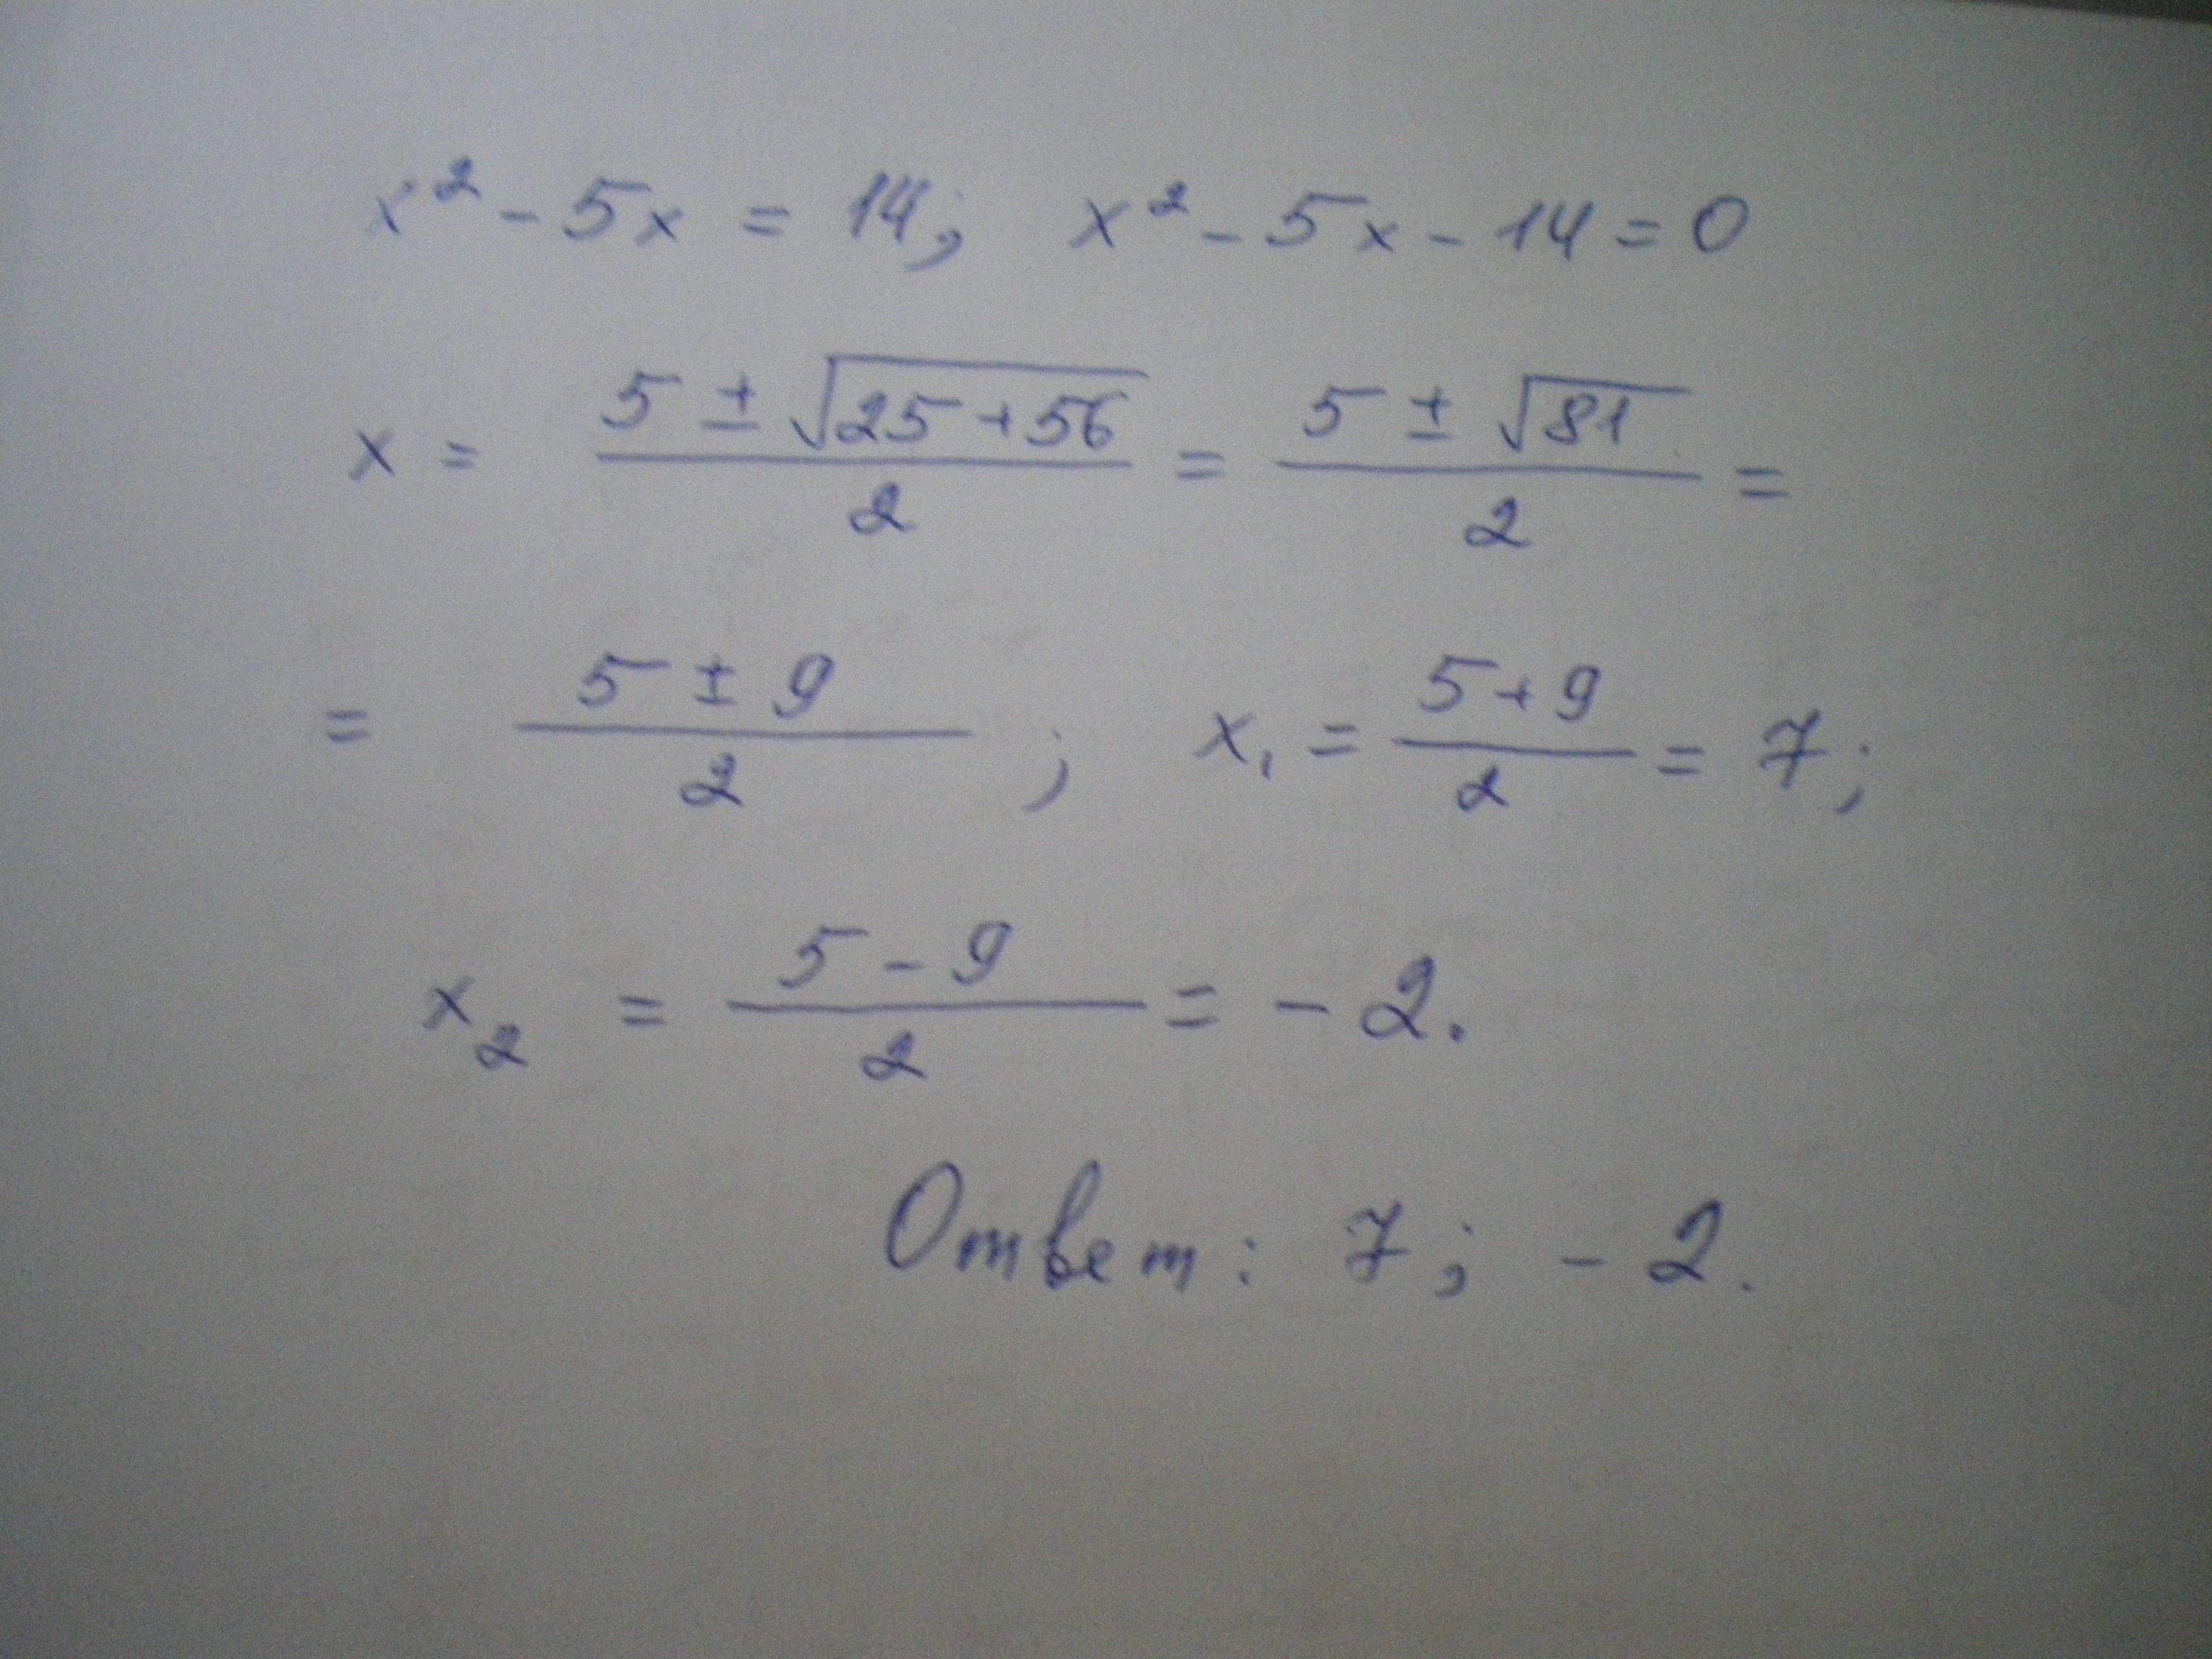 x² - 5x = 14; x² - 5x - 14 = 0
x = (5 ± √(25 + 56))/2 = (5 ± √81)/2 =
= (5 ± 9)/2 ; x₁ = (5 + 9)/2 = 7;
x₂ = (5 - 9)/2 = - 2.
Ответ: 7; - 2.